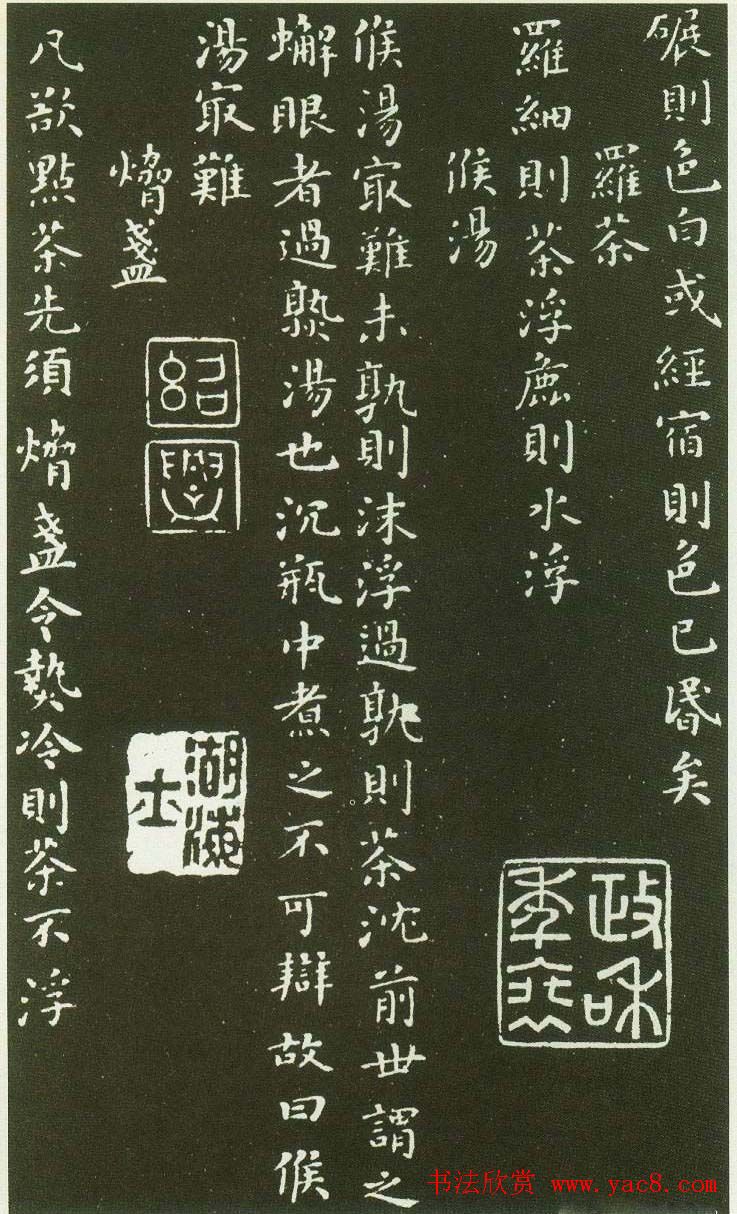 碾則色白或經宿則色已昬矣
羅茶
羅細則茶浮麁則水浮
候湯
候湯冣難未孰則沫浮過孰則茶沈前丗謂之
蠏眼者過熟湯也沉瓶中煮之不可辯故曰候
湯冣難
熁盞
凡欲點茶先須熁盞令熱冷則茶不浮
紹興
湖海士
政和
书法欣赏 www.yac8.com